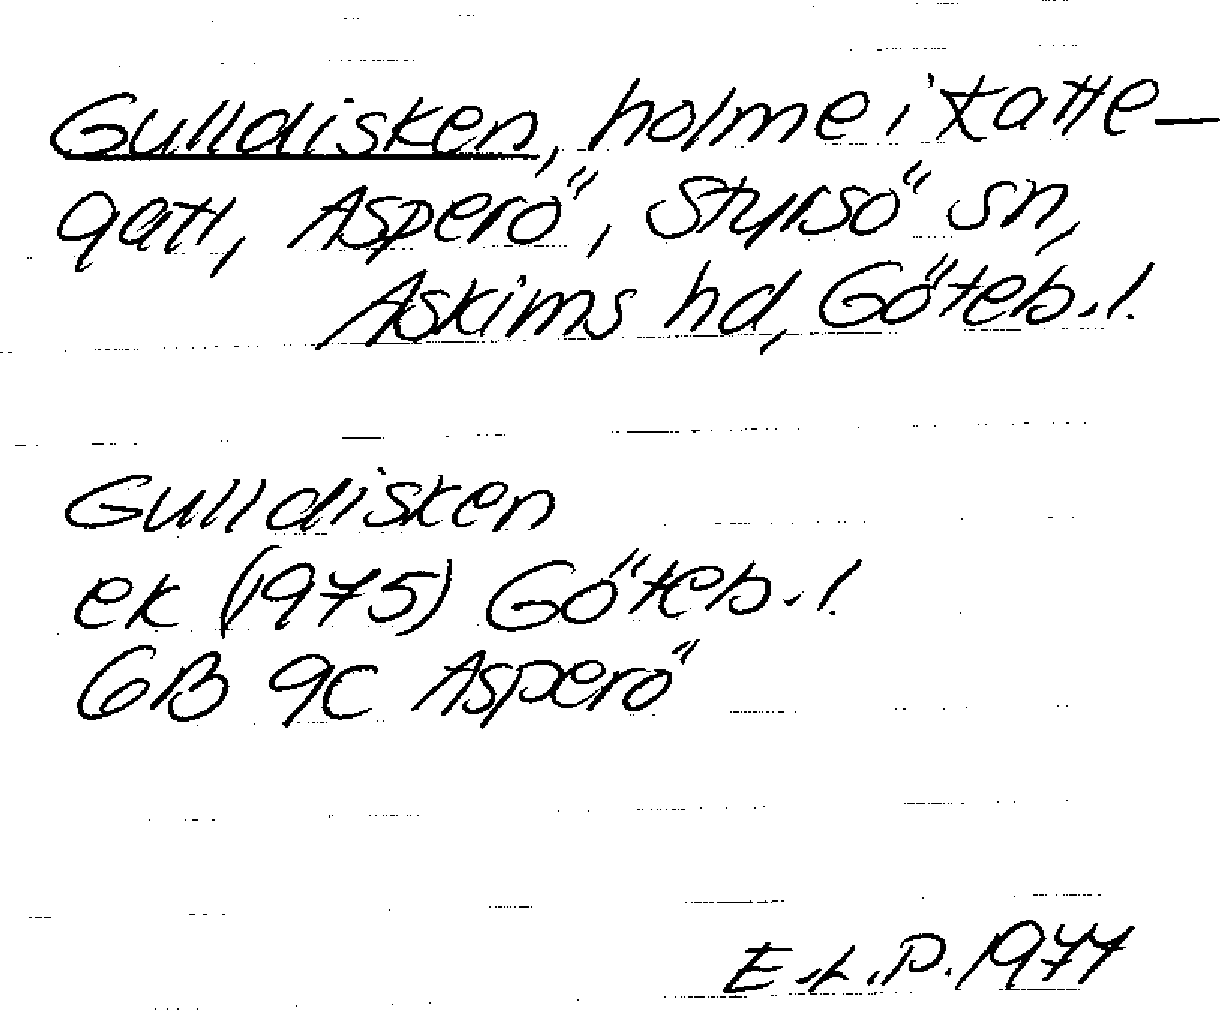 Gulldisken, holme i Katte-
gatt, Asperö, Styrsö sn,
Askims hd, Göteb. l.
Gulldisken
ek (1975) Göteb. l.
GB 9C Asperö
E.L.P. 1977